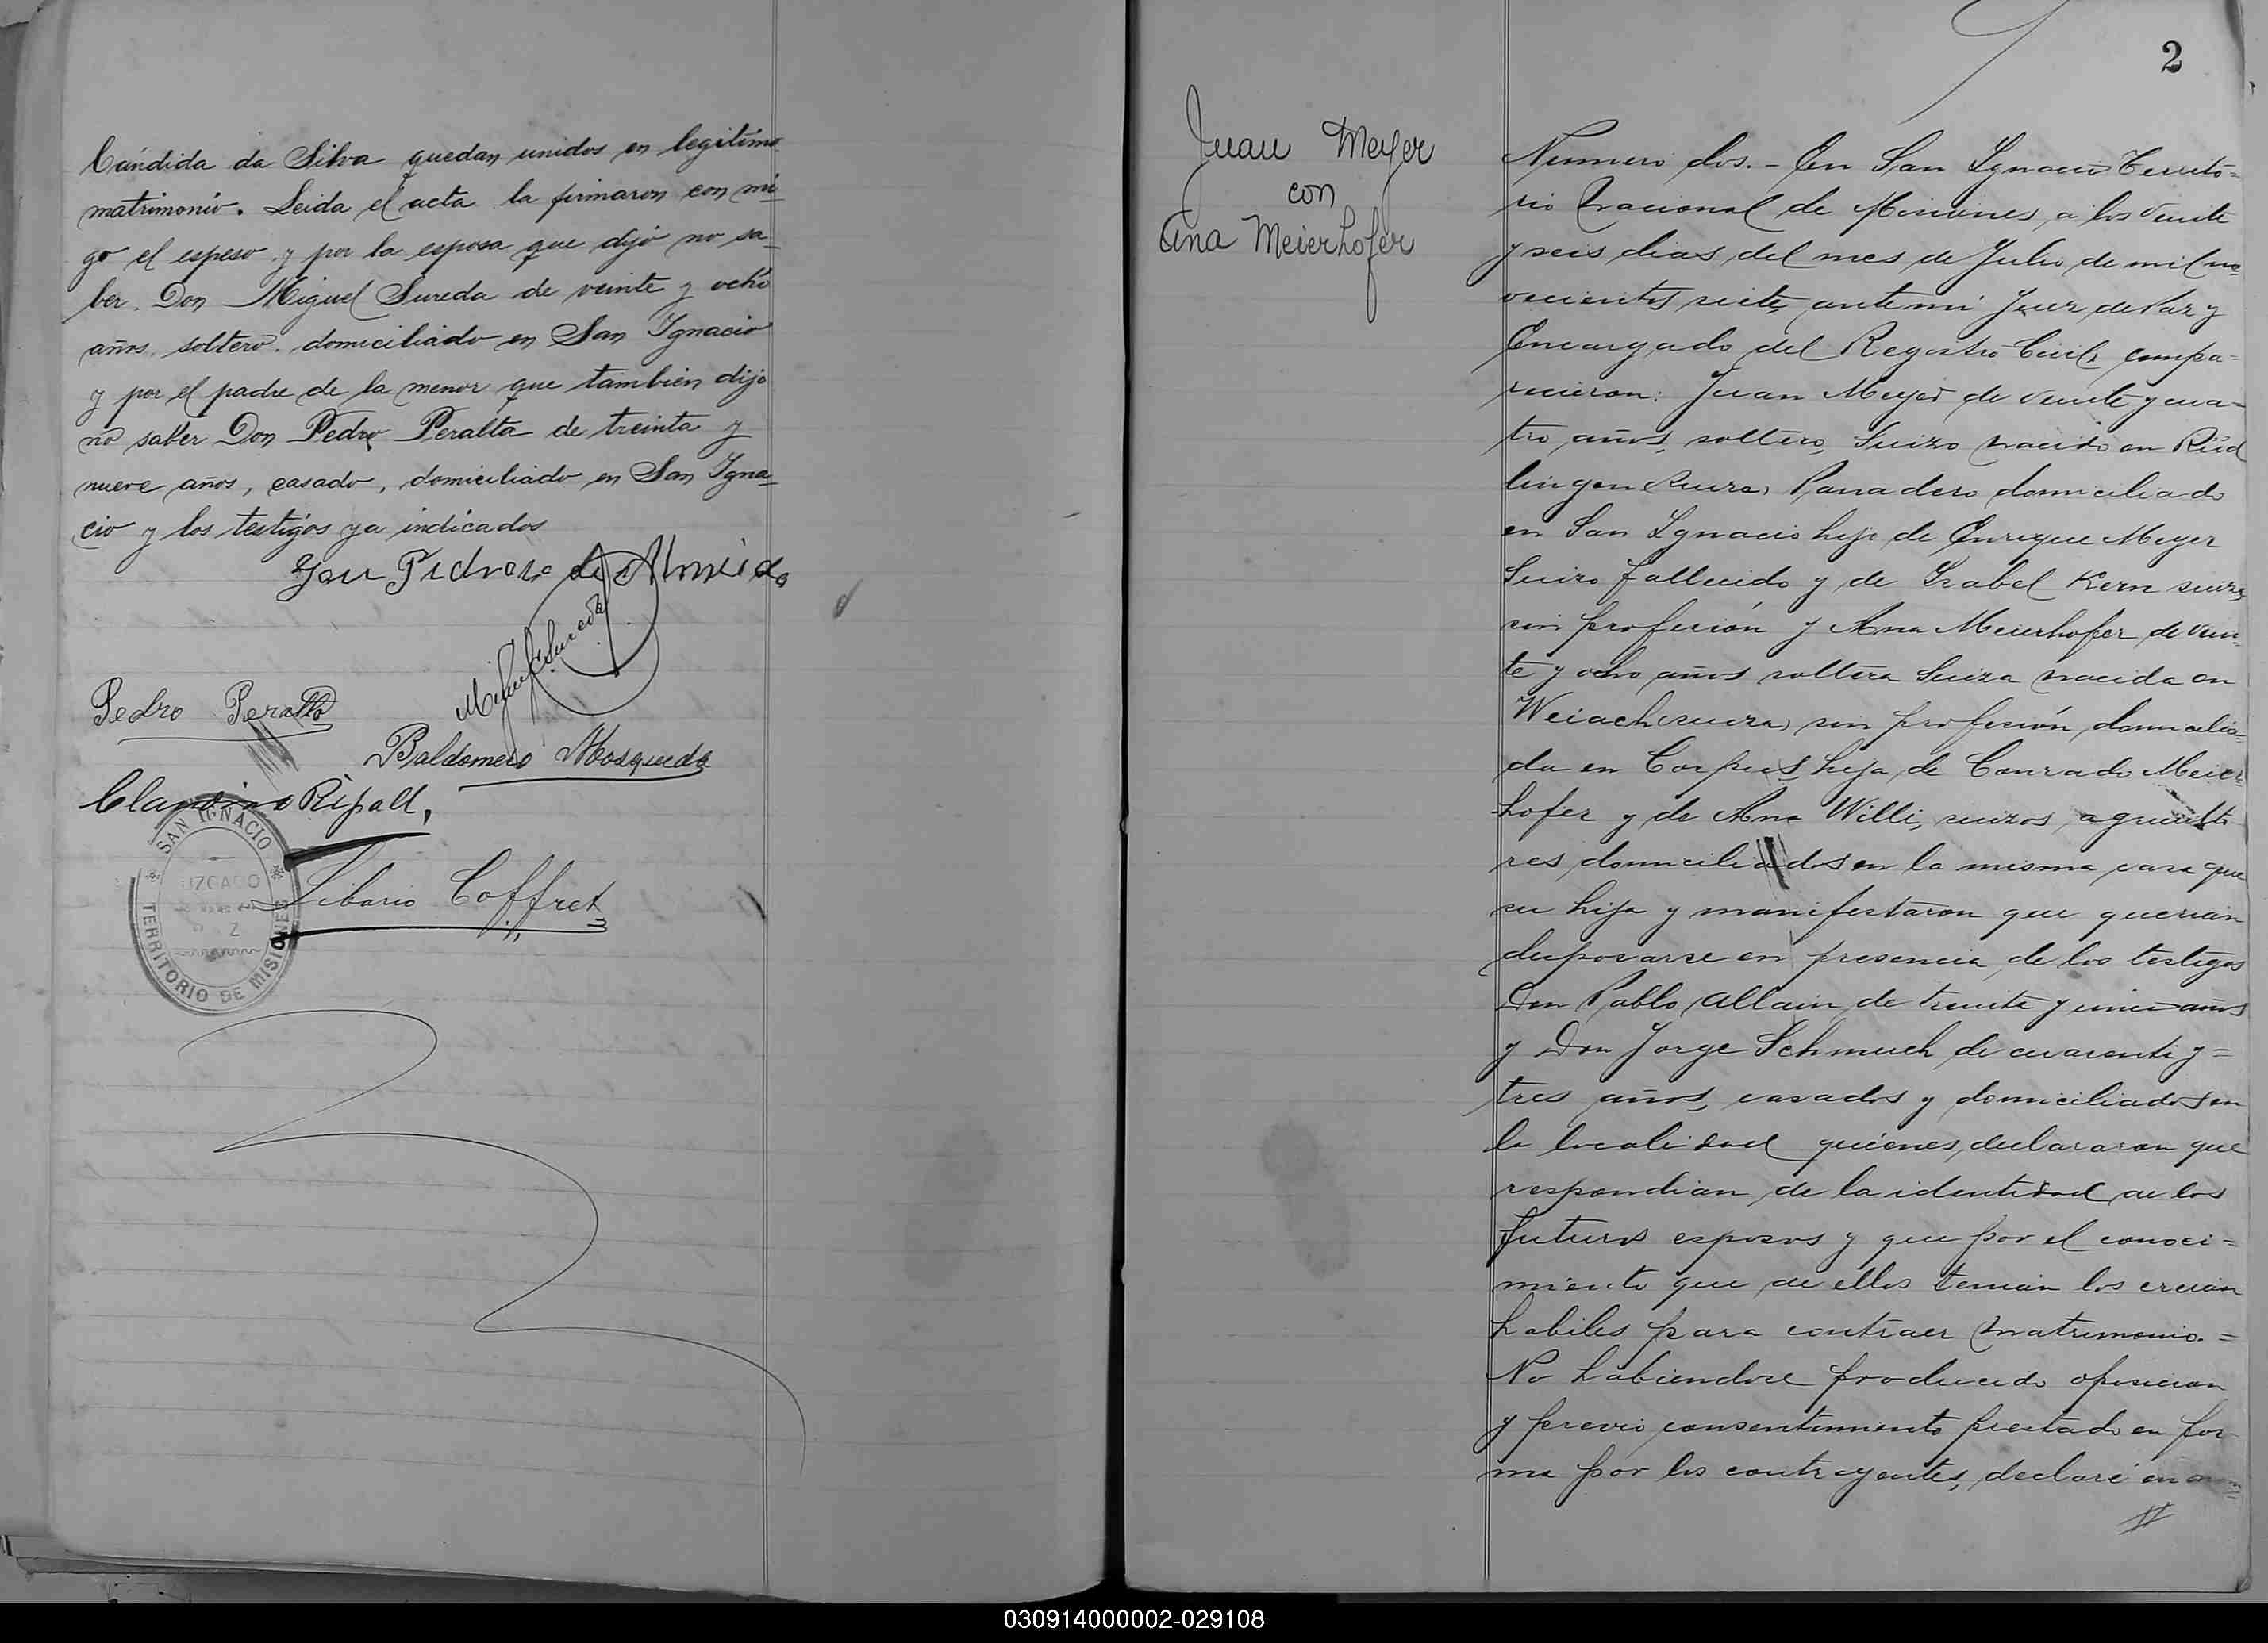 Cándida da Silva quedan unidos en legitimo
matrimonio. Leida el acta la firmaron con mi-
go el espeso y por la esposa que dijo no sa-
ber. Don Miguel Sureda de veinte y ocho
años, soltero. domiciliado en San Ignacio
y por el padre de la menor que tambien dijo
no saber Don Pedro Peralta de treinta y
nueve años, casado, domiciliado en San Igna-
cio y los testigos ya indicados
Miguel Sureda
Pedro Peralta
Baldomero Mosqueda
Claudino Ripall,
Libario Coffret
SAN IGNACIO
TERRITORIO DE MISIONES
2
Juan Meyer
con
Ana Meierhofer
Numero dos.- En San Ignacio Territo-
rio Nacional de Misiones, a los veinte
y seis dias del mes de Julio de mil no-
vecientos siete, ante mi Juez de Paz y
Encargado del Registro Civil, compa-
recieron: Juan Meyer de veinte y cua-
tro años, soltero, Suizo nacido en Rüd
lingen Suiza, Panadero domiciliado
en San Ignacio hijo de Enrique Meyer
Suizo fallecido y de Isabel Kern suiza,
sin profesión y Ana Meierhofer de vein-
te y ocho años soltera Suiza nacida en
Weiach (suiza) sin profesión, domicilia-
da en Corpus, hija de Conrado Meier-
hofer y de Ana Willi, suizos, agriculto
res domiciliados en la misma casa que
su hija y manifestaron que querian
desposarse en presencia de los testigos
Don Pablo Allain de treinta y cinco años
y Don Jorge Schmuch de cuarenta y =
tres años, casados y domiciliados en
la localidad quienes, declararon que
respondian de la identidad de los
futuros esposos y que por el conoci=
miento que de ellos tenian los creian
habiles para contraer matrimonio. =
No habiendose producido oposicion
y previo consentimiento prestado en for
ma por los contrayentes, declaré en
030914000002-029108